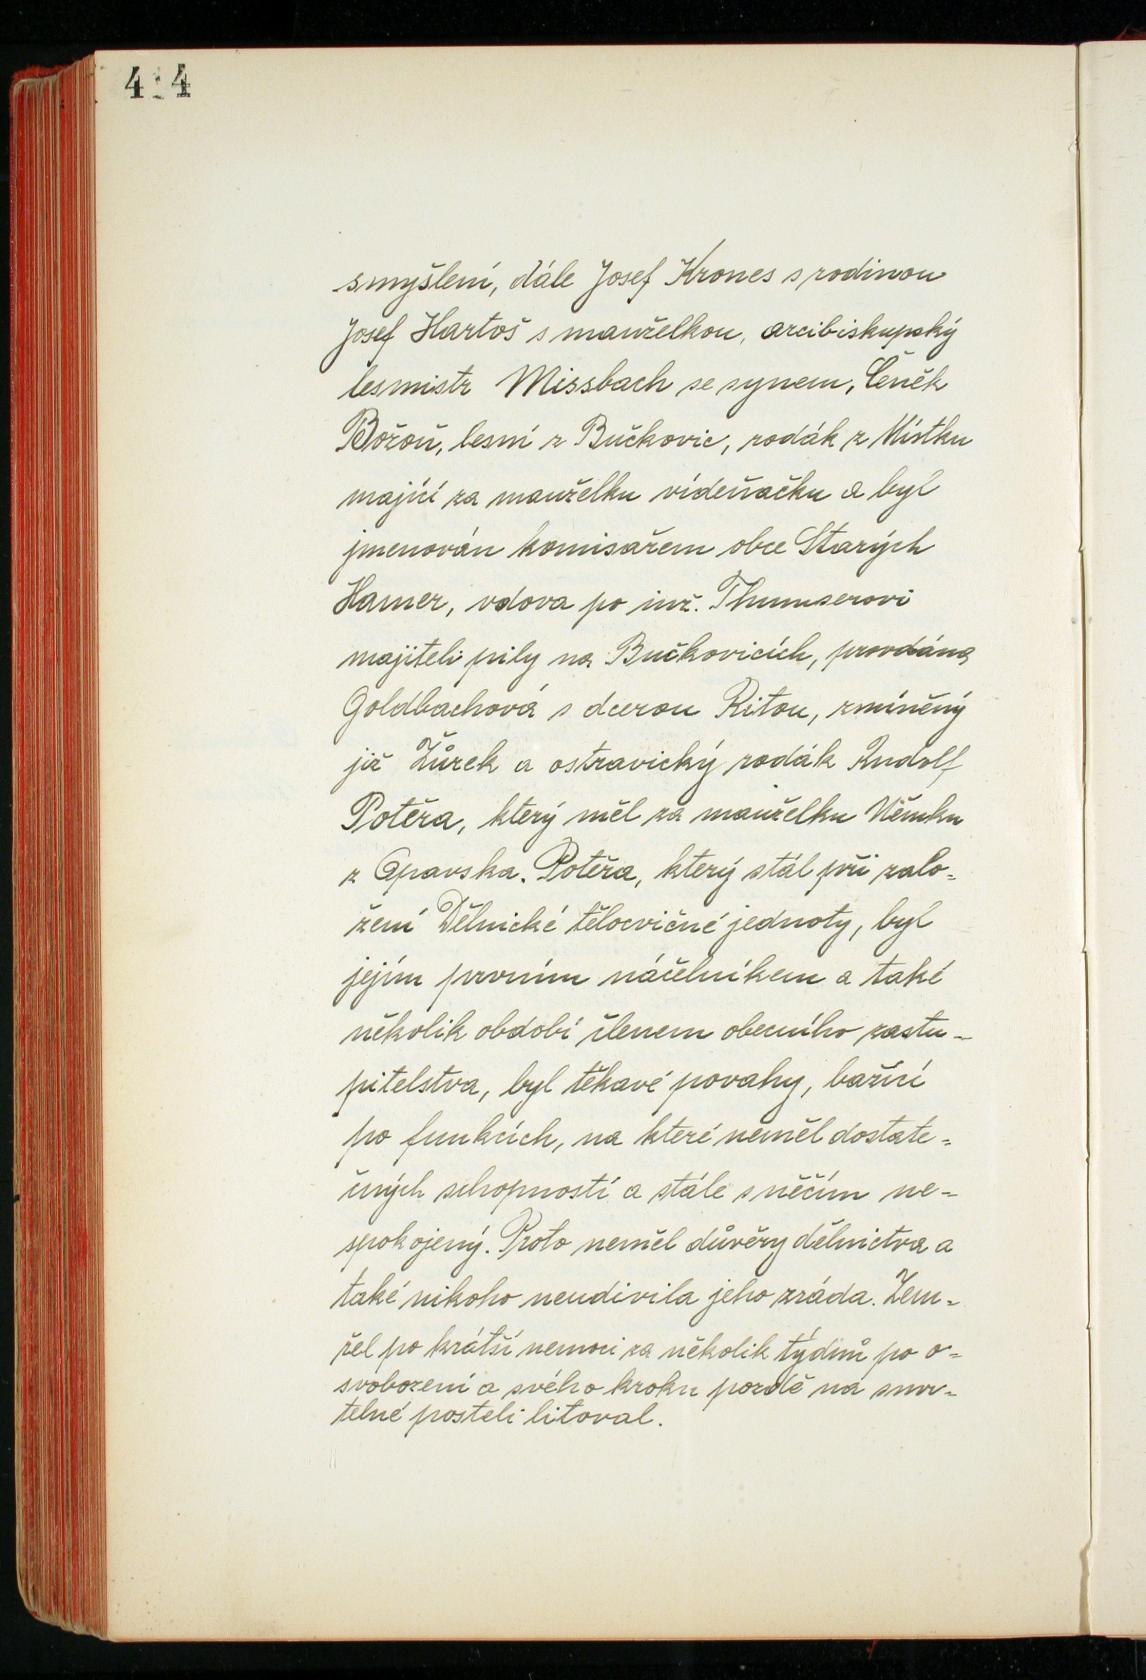 4 4
smyšlení, dále Josef Krones s rodinou
Josef Hartoš s manželkou, arcibiskupský
lesmistr Missbach se synem, Čeněk
Božoň, lesní z Bučkovic, rodák z Místku
mající za manželku vídeňačku a byl
jmenován komisařem obce Starých
Hamer, vdova po inž. Thumserovi
majiteli pily na Bučkovicích, provdána
Goldbachová s dcerou Ritou, zmíněný
již Žůrek a ostravický rodák Rudolf
Potěra, který měl za manželku Němku
z Opavska. Potěra, který stál při zalo=
žení Dělnické tělocvičné jednoty, byl
jejím prvním náčelníkem a také
několik období členem obecního zastu-
pitelstva, byl těkavé povahy, bažící
po funkcích, na které neměl dostate=
čných schopností a stále s něčím ne=
spokojený. Proto neměl důvěry dělnictva a
také nikoho neudivila jeho zráda. Zem=
řel po krátší nemoci za několik týdnů po o=
svobození a svého kroku pozdě na smr=
telné posteli litoval.